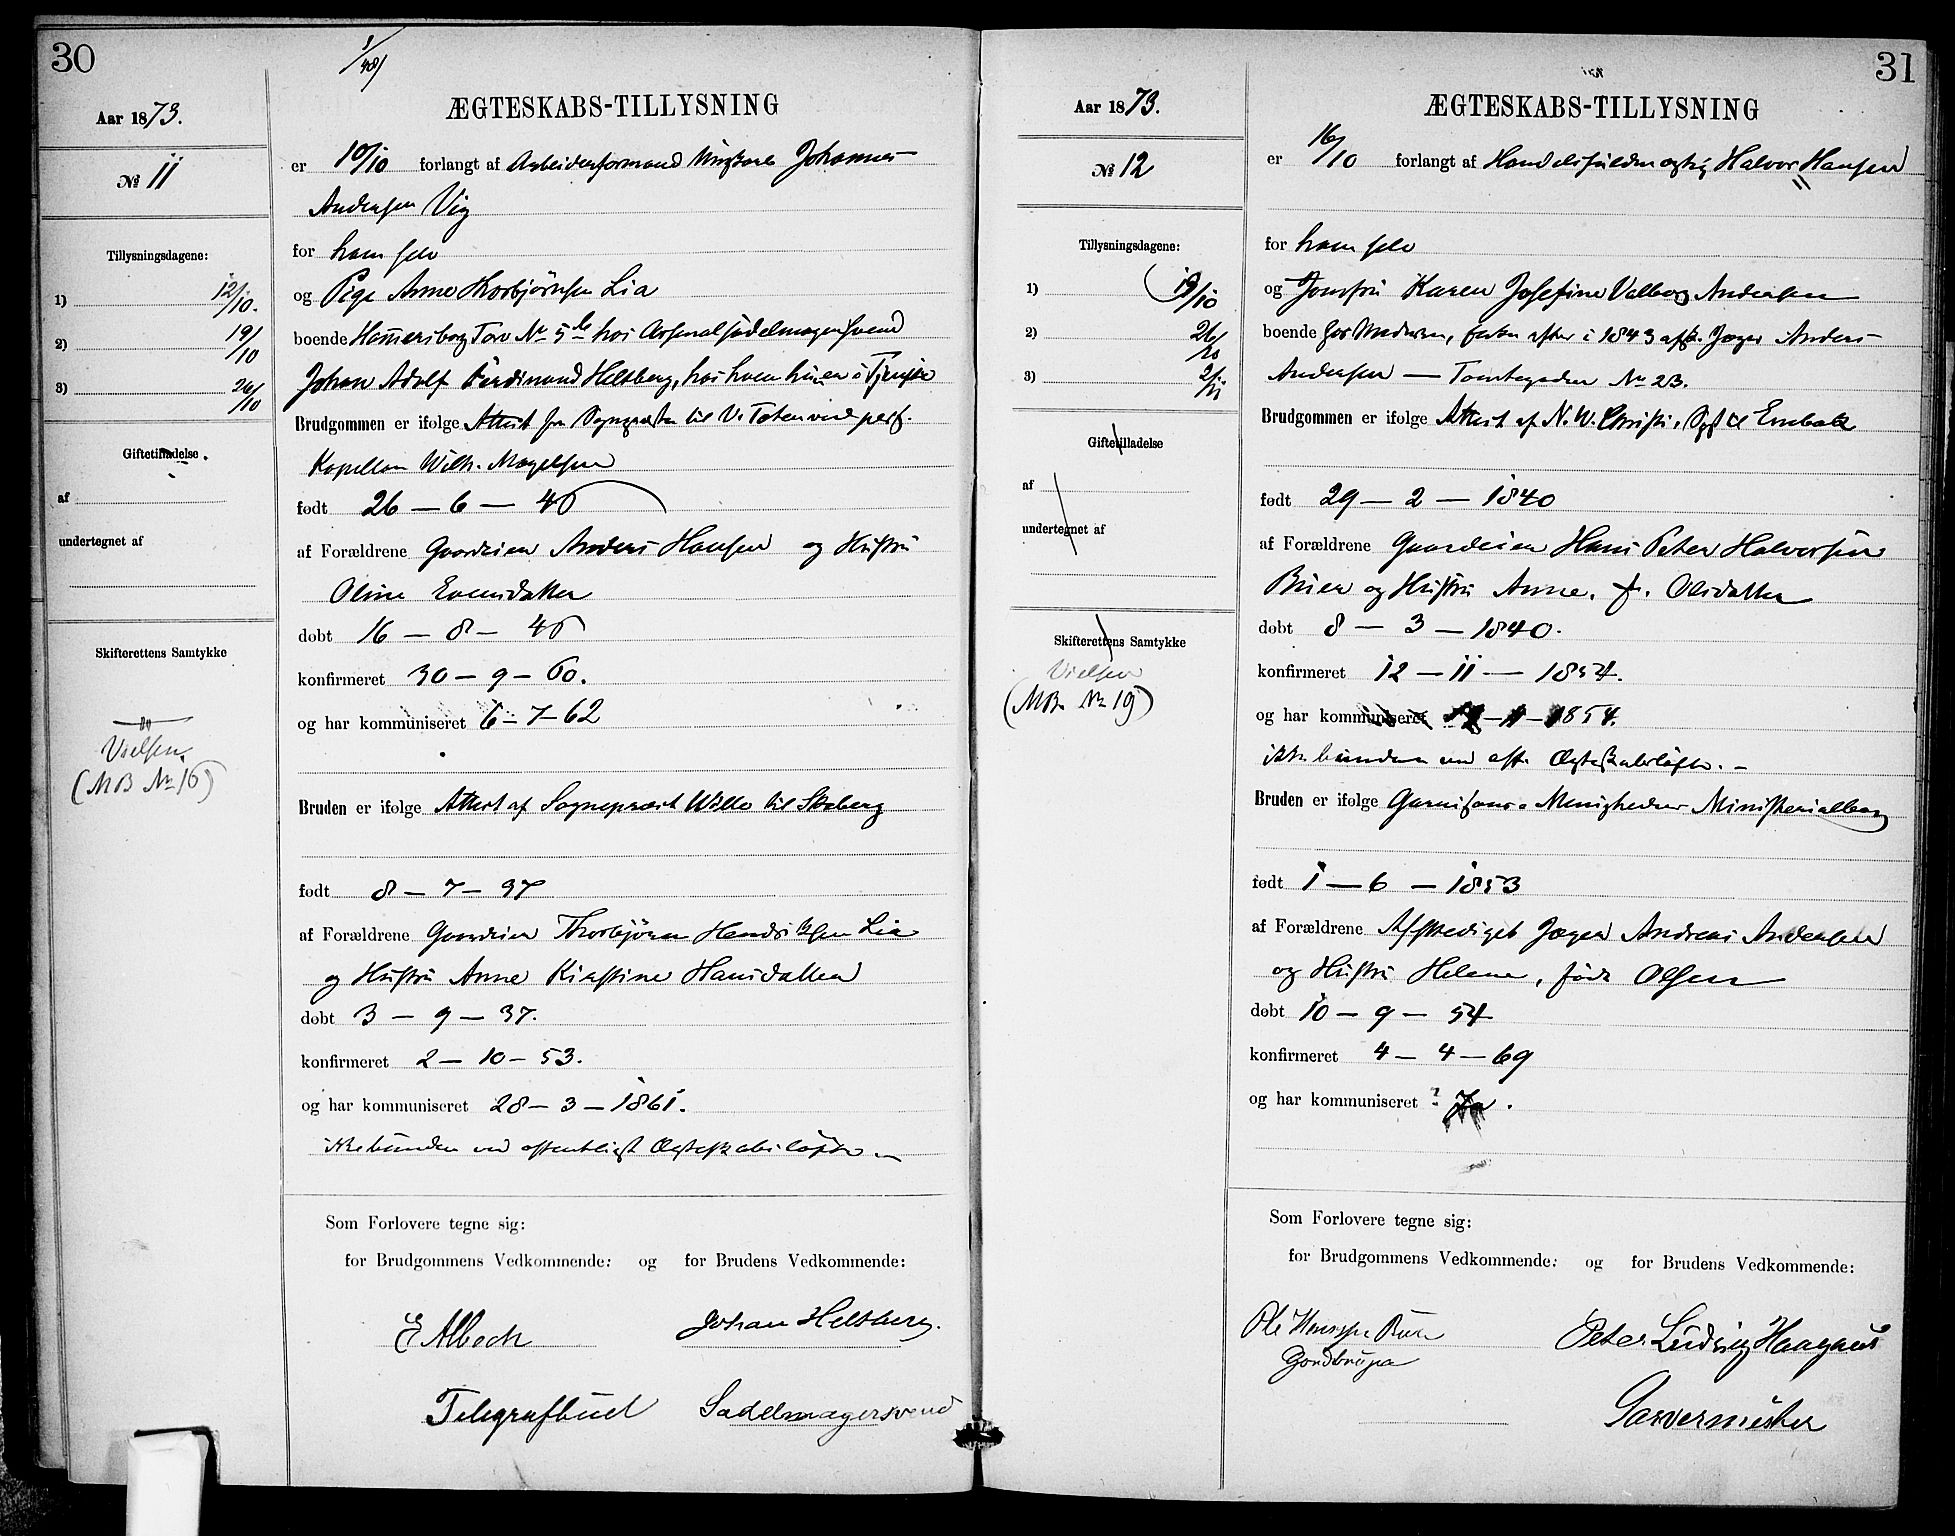 30
ÆGTESKABS-TILLYSNING
Aar 1873.
№ 11
er 10/10 forlangt af Arbeidsformand Johannes
Andersen Vig
Tillysningsdagene:
1) 12/10.
2) 19/10
3) 26/10
for ham selv
og Pige Anne Thorbjørnsen Lia
boende Hammersborg Torv No 5 hos Arsenalsadelmagersvend
Johan Adolf Ferdinand Helsberg, hos hvem hun er i Tjeneste
Brudgommen er ifølge Attest fra Sognepresten til V. Toten ved pers.
Kapellan Wilh. Magelssen
Giftetilladelse
af
undertegnet af
født 26 — 6 — 45
af Forældrene Gaardeier Anders Hansen og Hustru
Oline Evensdatter
døbt 16 — 8 — 45
Skifterettens Samtykke
konfirmeret 30 — 9 — 60.
og har kommuniseret 6 — 7 — 62
Vielsen
(MB No 16)
Bruden er ifølge Attest af Sognepræst Wille til
født 8 — 7 — 37
af Forældrene Gaardeier Thorbjørn Hendriksen Lia
og Hustru Anne Kirstine Hansdatter
døbt 3 — 9 — 37.
konfirmeret 2 — 10 — 53.
og har kommuniseret 28 — 3 — 1861.
ikke bunden ved offentligt Ægteskabsløfte
Som Forlovere tegne sig:
for Brudgommens Vedkommende: og for Brudens Vedkommende:
E Albech Johan Helsberg.
Telegrafbud Sadelmagersvend
31
ÆGTESKABS-TILLYSNING
Aar 1873.
№ 12
er 16/10 forlangt af Handelsfuldmægtig Halvor Hansen
Tillysningsdagene:
1) 19/10
2) 26/10
3) 2/11
for ham selv
og Jomfru Karen Josefine Valborg Andersen
boende hos Moderen, Enken efter i 1843 afsk. Jæger Anders
Andersen — Tomtegaden No 23.
Brudgommen er ifølge Attest af N. W. Christi, Spr til Enebak
Giftetilladelse
af
undertegnet af
født 29 — 2 — 1840
af Forældrene Gaardeier Hans Peter Halvorsen
Buer og Hustru Anne, f. Olsdatter
døbt 8 — 3 — 1840.
Skifterettens Samtykke
Vielsen
(MB. No 19)
konfirmeret 12 — 11 — 1854.
og har kommuniseret 12 — 11 — 1854.
ikke bunden ved off. Ægteskabsløfte. —
Bruden er ifølge Garnisons-Menighedens Ministerialbog
født 1 — 6 — 1853
af Forældrene Afskediget Jæger Andreas Andersen
og Hustru Helene, født Olsen
døbt 10 — 9 — 54
konfirmeret 4 — 4 — 69
og har kommuniseret ? Ja.
Som Forlovere tegne sig:
for Brudgommens Vedkommende: og for Brudens Vedkommende:
Ole Hansen Buer Peter Ludvig Haagens
Garvermester